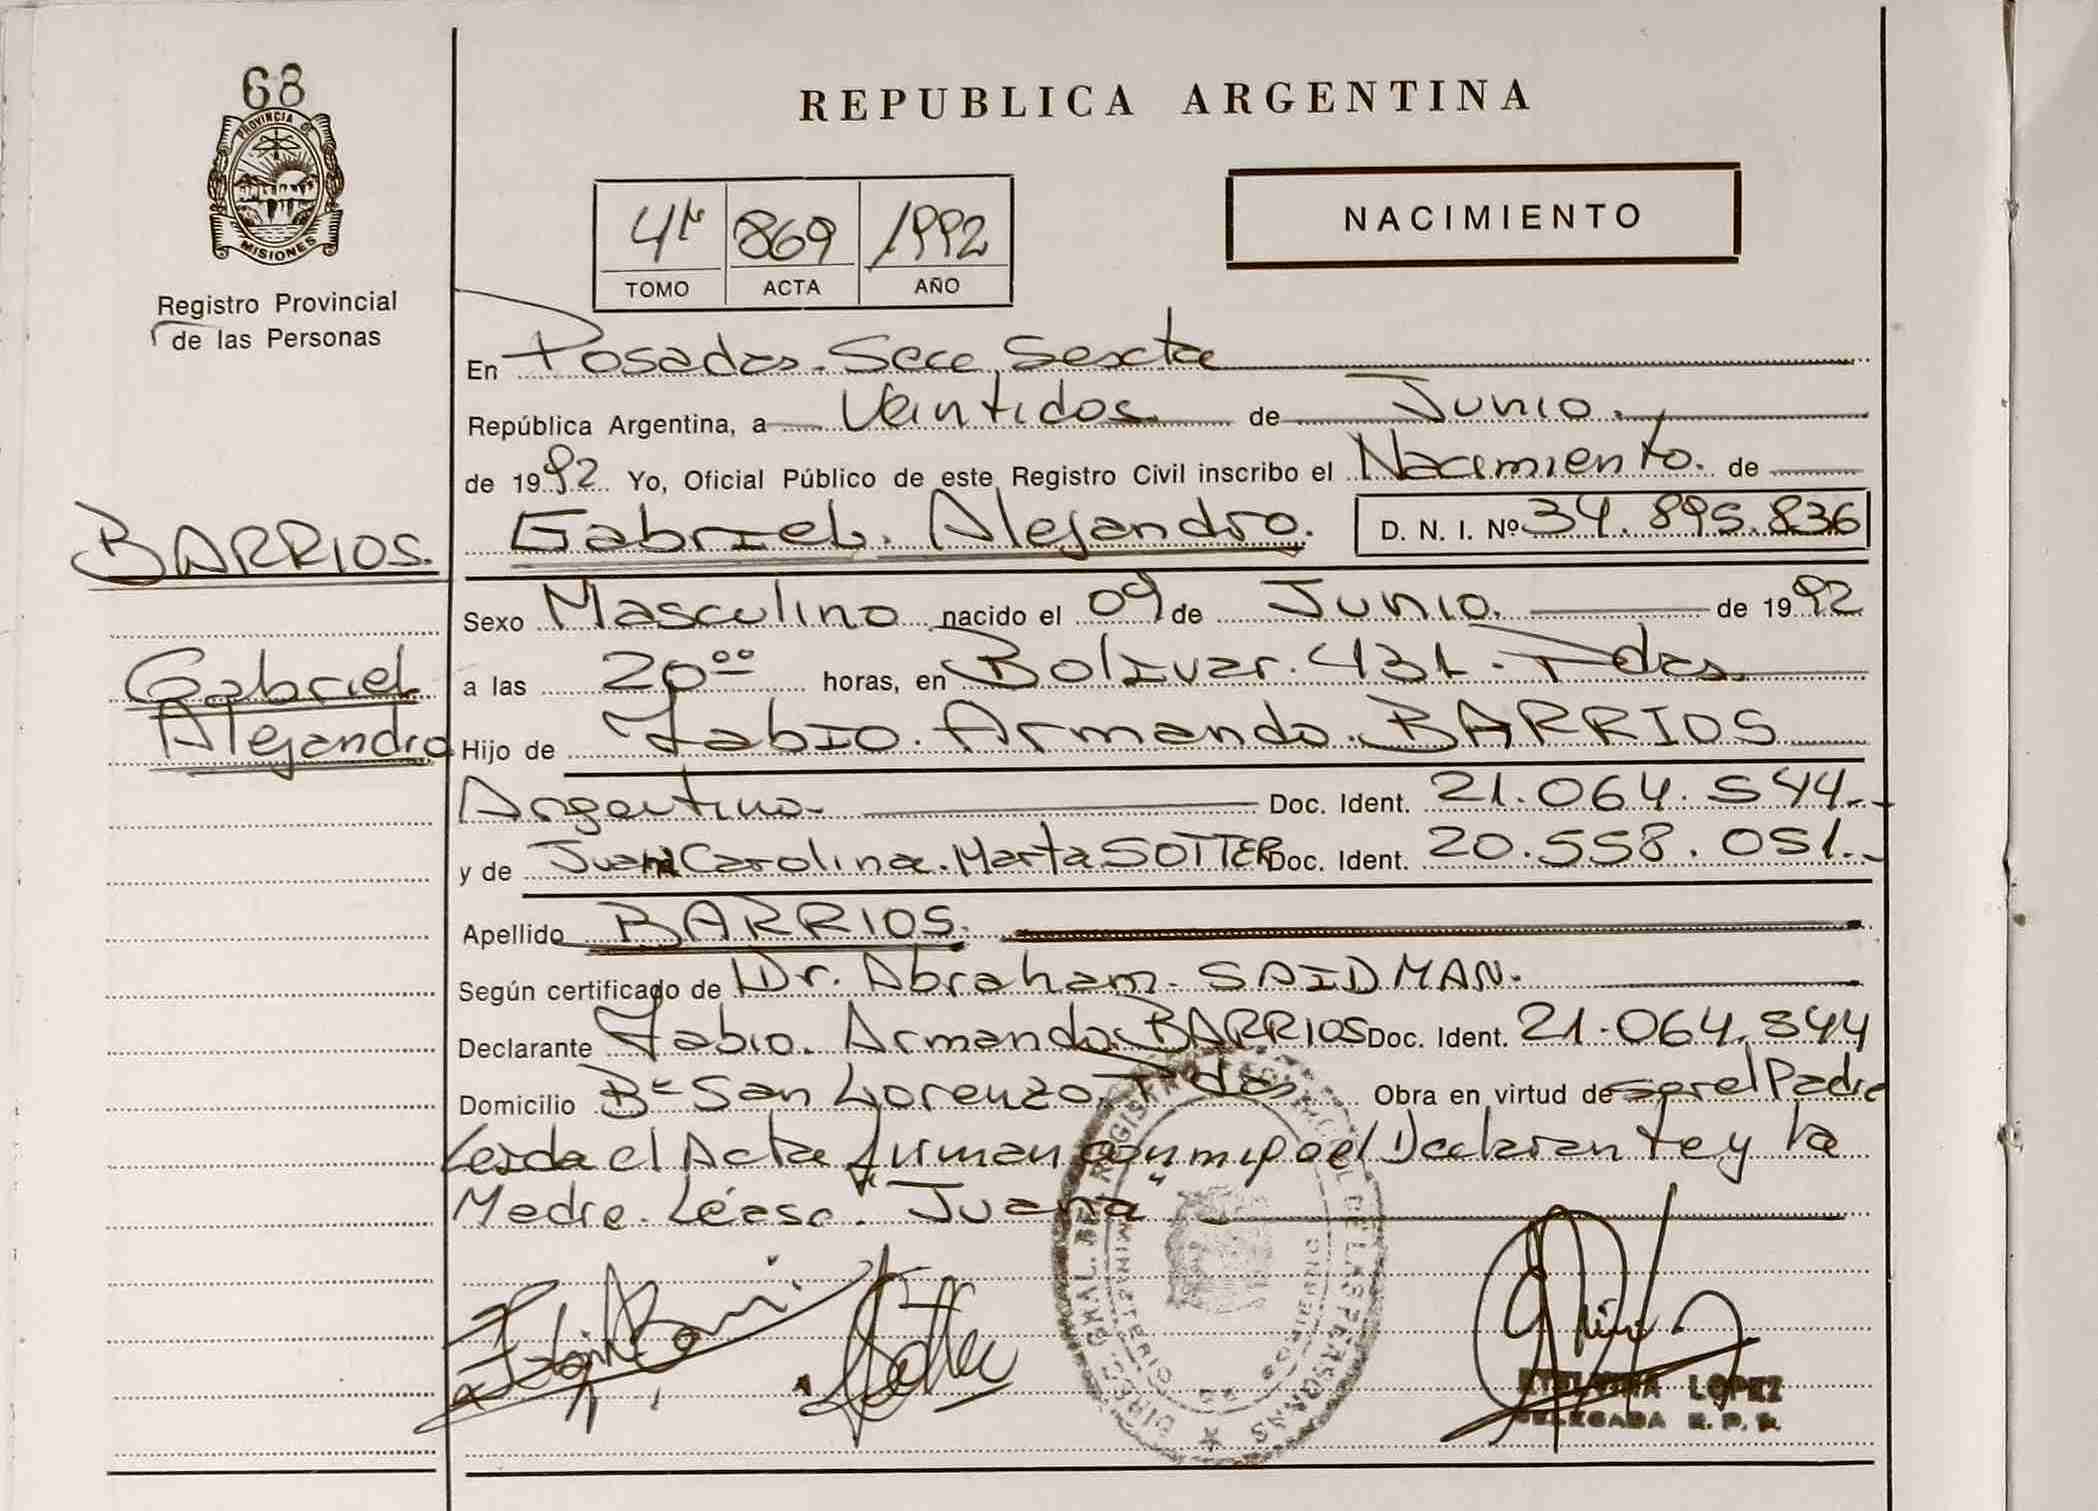 68
PROVINCIA DE
MISIONES
Registro Provincial
de las Personas
REPUBLICA ARGENTINA
NACIMIENTO
4to 869 1992
TOMO ACTA AÑO
En Posadas. Secc. Sexta
República Argentina, a Veintidos de Junio.
de 1992 Yo, Oficial Público de este Registro Civil inscribo el Nacimiento. de
BARRIOS. Gabriel. Alejandro. D. N. I. Nº 34.895.836
Sexo Masculino nacido el 09 de Junio. de 1992
Gabriel a las 20⁰⁰ horas, en Bolivar. 431. Pdas.
Alejandro Hijo de Fabio. Armando. BARRIOS
Argentino. Doc. Ident. 21.064.544.-
y de Juana Carolina. Marta SOTTER Doc. Ident. 20.558.051.-
Apellido BARRIOS.
Según certificado de Dr. Abraham. SAIDMAN.
Declarante Fabio. Armando. BARRIOS Doc. Ident. 21.064.544
Domicilio Bº San Lorenzo. Pdas Obra en virtud de ser el Padre
Leida el Acta firman conmigo el Declarante y la
Madre. Léase. "Juana"
LOPEZ
DELEGADA R. P. P.